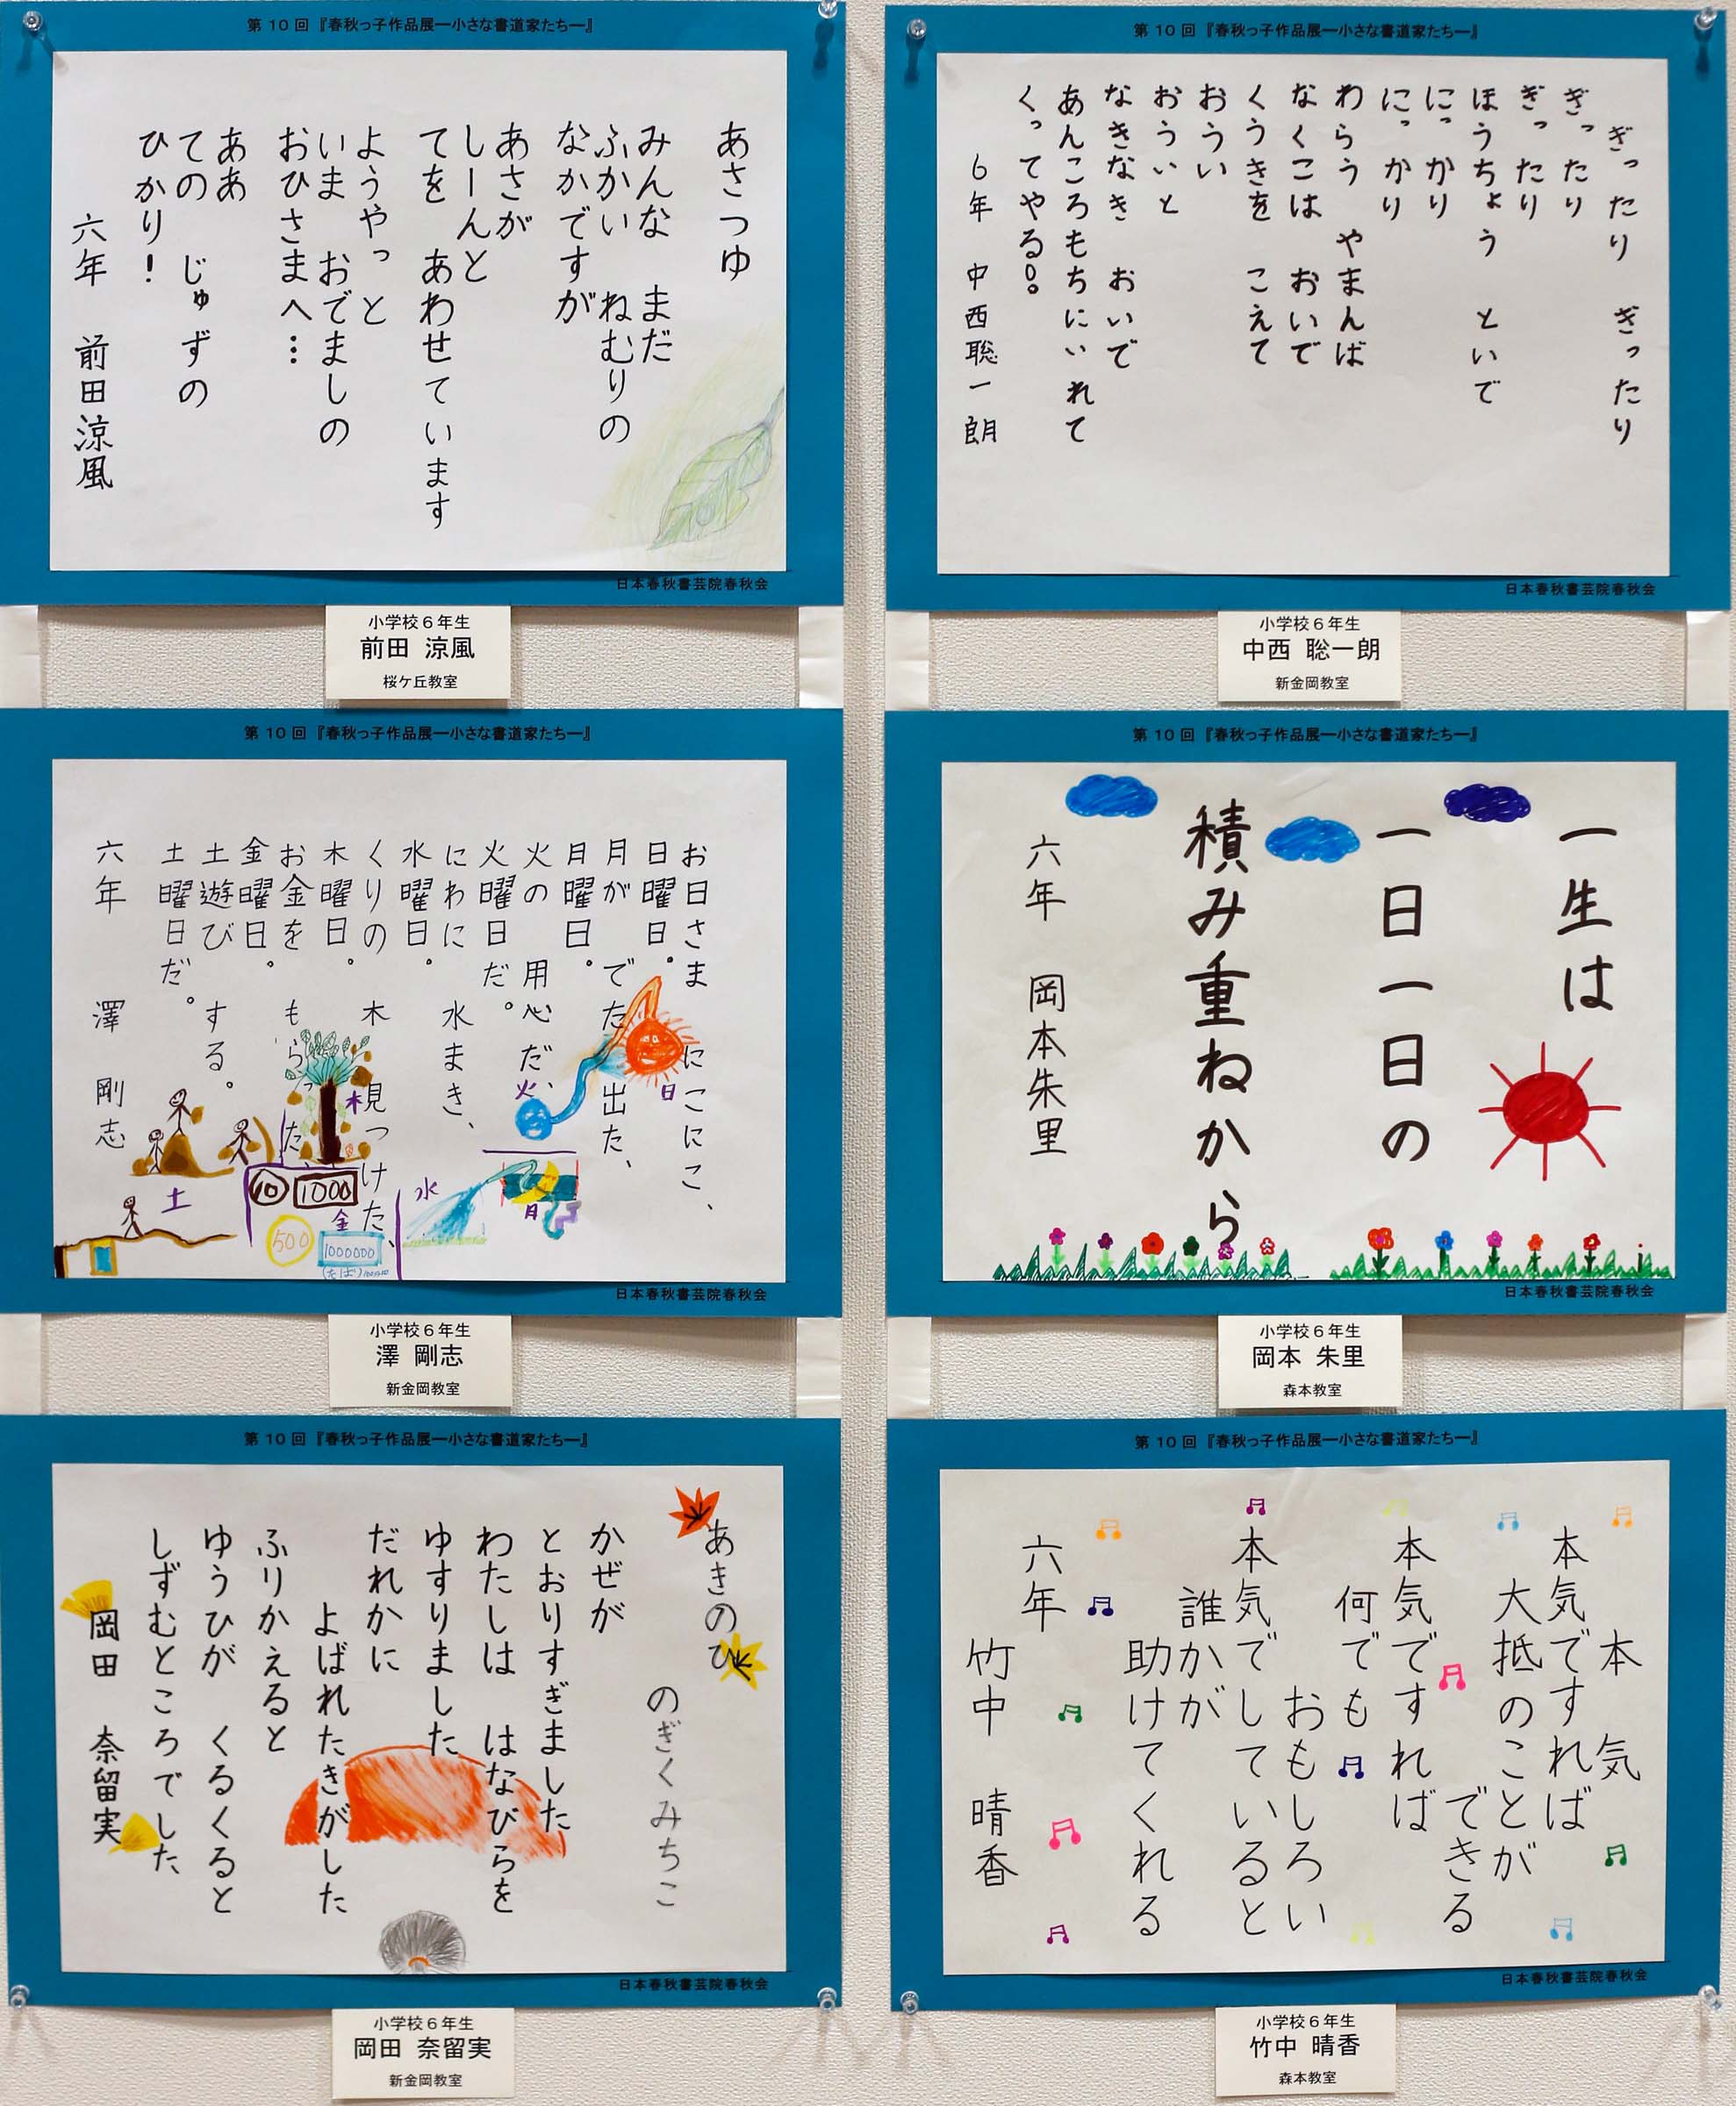 第10回『春秋っ子作品展―小さな書道家たち―』
あさつゆ
みんな まだ
ふかい ねむりの
なかですが
あさが
しーんと
てを あわせています
ようやっと
いま おでましの
おひさまへ…
ああ
ての じゅずの
ひかり！
六年 前田涼風
日本春秋書芸院春秋会
小学校６年生
前田 涼風
桜ケ丘教室
第10回『春秋っ子作品展―小さな書道家たち―』
ぎったり ぎったり
ぎったり
ぎったり
ほうちょう といで
にっかり
にっかり
わらう やまんば
なくこは おいで
くうきを こえて
おうい
おういと
なきなき おいで
あんころもちにいれて
くってやるo。
6年 中西聡一朗
日本春秋書芸院春秋会
小学校６年生
中西 聡一朗
新金岡教室
第10回『春秋っ子作品展―小さな書道家たち―』
お日さま にこにこ、
日曜日。
月が でた 出た、
月曜日。
火の 用心だ、
火曜日だ。
にわに 水まき、
水曜日。
くりの 木 見つけた、
木曜日。
お金を もらった、
金曜日。
土遊び する。
土曜日だ。
六年 澤 剛志
日
火
木
水
月
土
金
10
1000
500
1000000
(たば)
日本春秋書芸院春秋会
小学校６年生
澤 剛志
新金岡教室
第10回『春秋っ子作品展―小さな書道家たち―』
一生は
一日一日の
積み重ねから
六年 岡本朱里
日本春秋書芸院春秋会
小学校６年生
岡本 朱里
森本教室
第10回『春秋っ子作品展―小さな書道家たち―』
あきのひ
のぎくみちこ
かぜが
とおりすぎました
わたしは はなびらを
ゆすりました
だれかに
よばれたきがした
ふりかえると
ゆうひが くるくると
しずむところでした
岡田 奈留実
日本春秋書芸院春秋会
小学校６年生
岡田 奈留実
新金岡教室
第10回『春秋っ子作品展―小さな書道家たち―』
本 気
本気ですれば
大抵のことが
できる
本気ですれば
何でも
おもしろい
本気でしていると
誰かが
助けてくれる
六年 竹中 晴香
日本春秋書芸院春秋会
小学校６年生
竹中 晴香
森本教室